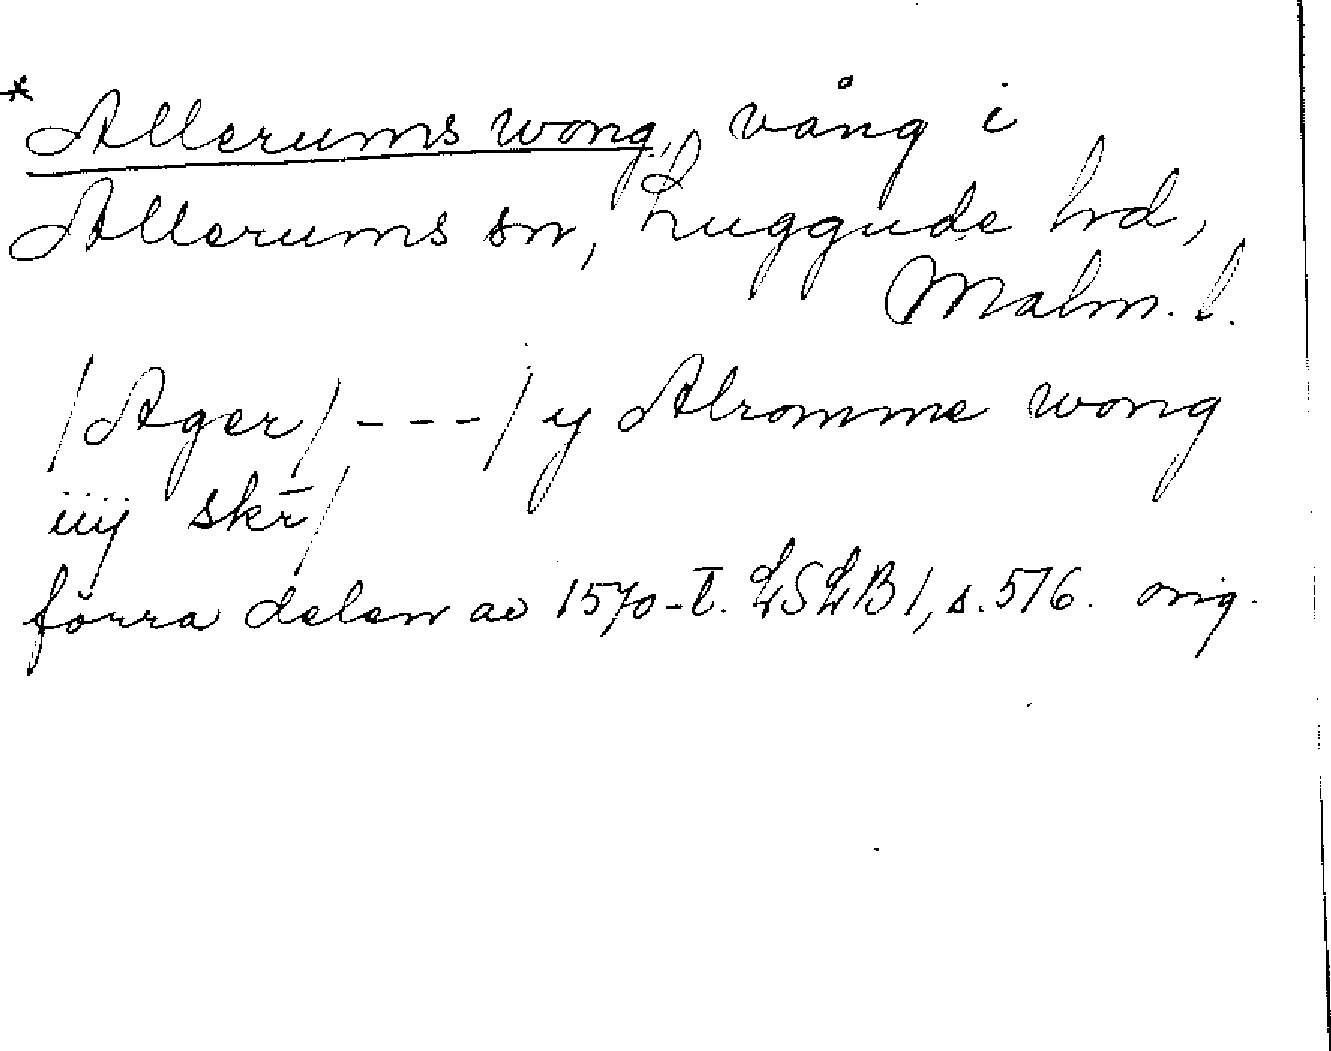 *Allerums wong, vång i
Allerums sn, Luggude hd,
Malm. l.
/Ager/ - - - / ij Alromme wong
iiij skr̄/
förra delen av 1570-t. LSLB 1, s. 576. orig.